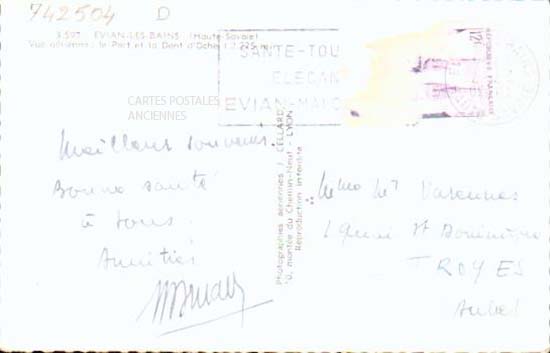 742504 D
3.597. EVIAN-LES-BAINS (Haute-Savoie)
Vue aérienne : le Port et la Dent d'Oche (2.225 m)
SANTE-TOU
ELEGAN
EVIAN-MAJO
12F
REPUBLIQUE FRANÇAISE
CARTES POSTALES
ANCIENNES
Meilleurs souvenirs.
Bonne santé
à tous.
Amitiés
Photographies aériennes J. CELLARD
montée du Chemin-Neuf - LYON
Reproduction interdite
Varennes
Quai St Dominique
TROYES
Aube